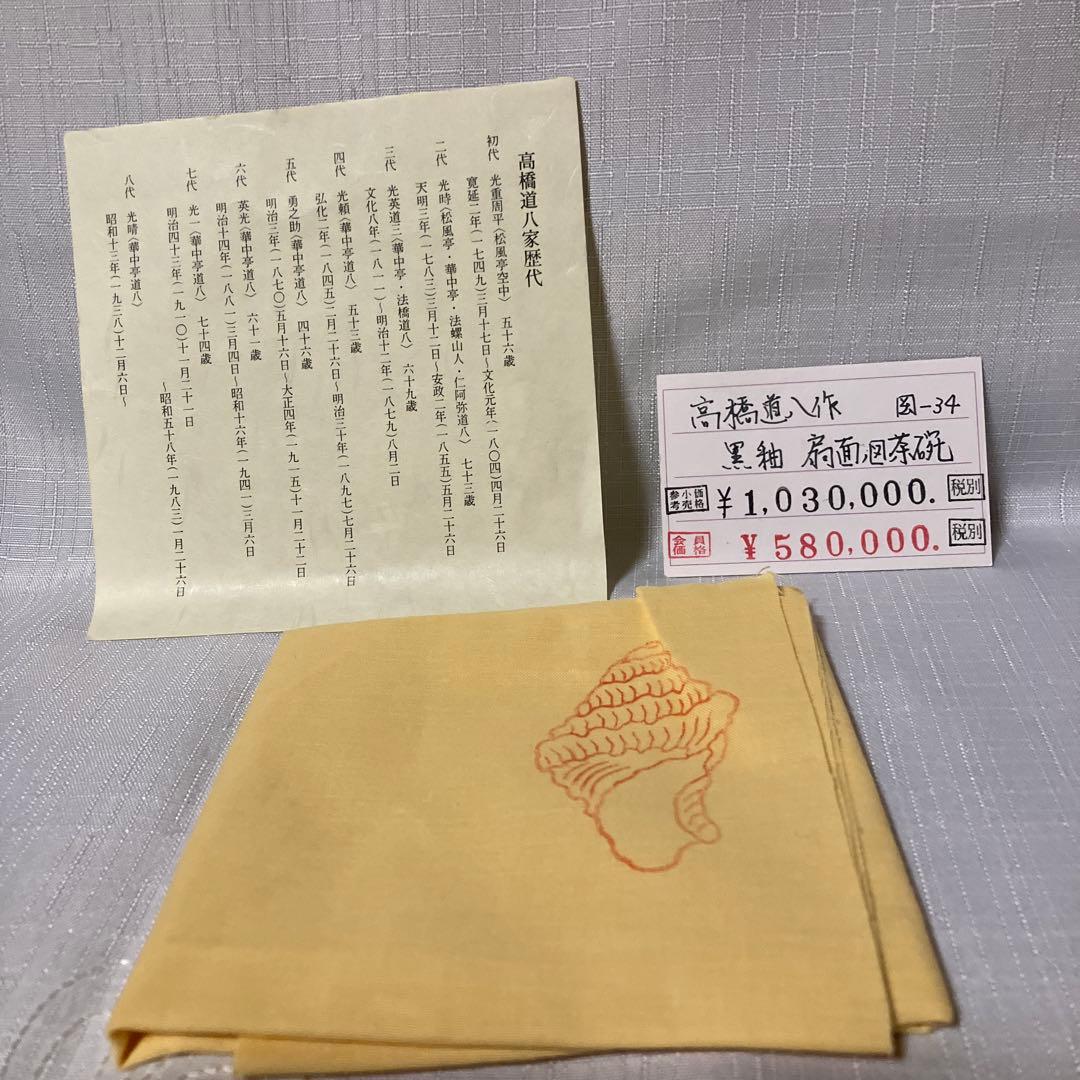 高橋道八家歴代
初代　光重周平〈松風亭空中〉　五十六歳
寛延二年(一七四九)三月十七日〜文化元年(一八〇四)四月二十六日
二代　光時〈松風亭・華中亭・法螺山人・仁阿弥道八〉　七十三歳
天明三年(一七八三)三月十二日〜安政二年(一八五五)五月二十六日
三代　光英道三〈華中亭・法橋道八〉　六十九歳
文化八年(一八一一)〜明治十二年(一八七九)八月二日
四代　光頼〈華中亭道八〉　五十三歳
弘化二年(一八四五)二月二十六日〜明治三十年(一八九七)七月二十六日
五代　勇之助〈華中亭道八〉　四十六歳
明治三年(一八七〇)五月十六日〜大正四年(一九一五)十一月二十二日
六代　英光〈華中亭道八〉　六十一歳
明治十四年(一八八一)三月四日〜昭和十六年(一九四一)三月六日
七代　光一〈華中亭道八〉　七十四歳
明治四十三年(一九一〇)十一月二十一日
〜昭和五十八年(一九八三)一月二十六日
八代　光晴〈華中亭道八〉
昭和十三年(一九三八)十二月六日〜
高橋道八作　図-34
黒釉 扇面図茶碗
参考小売価格 ¥1,030,000. 税別
会員価格 ¥580,000. 税別